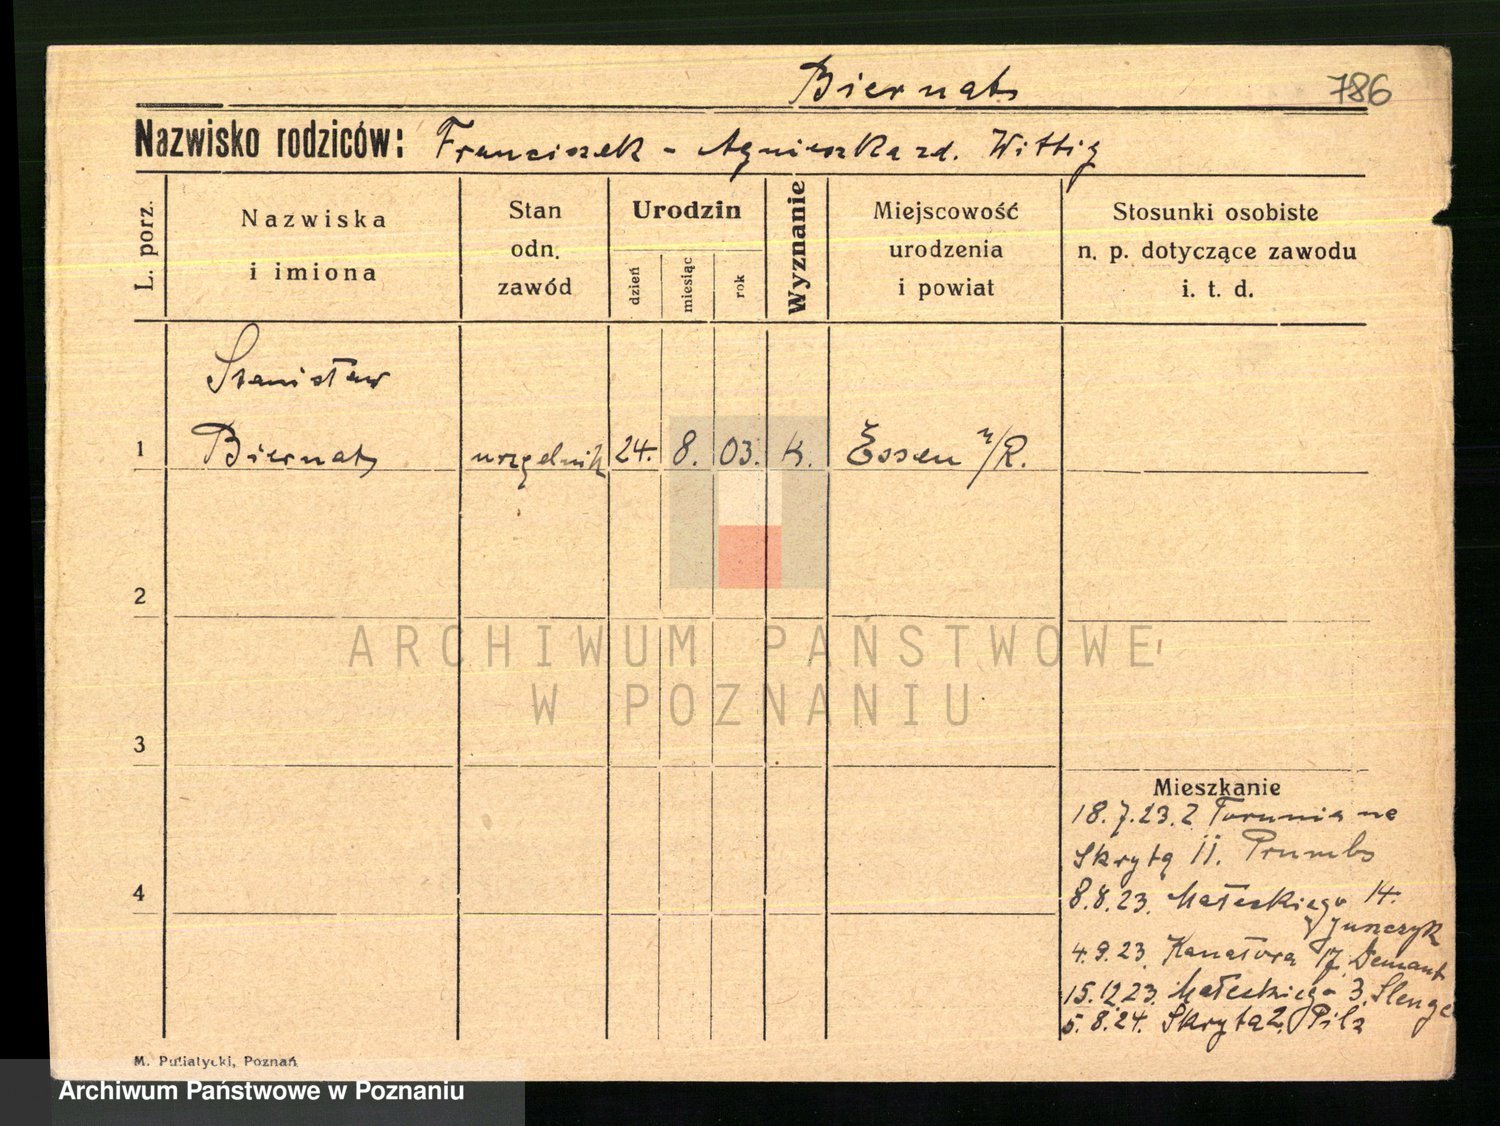 Biernat
786
Nazwisko rodziców: Franciszek - Agnieszka zd. Wittig
L. porz.
Nazwiska i imiona
Stan odn. zawód
Urodzin
dzień
miesiąc
rok
Wyznanie
Miejscowość urodzenia i powiat
Stosunki osobiste n. p. dotyczące zawodu i. t. d.
Stanisław
1 Biernat urzędnik 24. 8. 03. K. Essen n/R.
2
ARCHIWUM PAŃSTWOWE
W POZNANIU
3
Mieszkanie
18.7.23. z Torunia na
Skrytą 11.
4
8.8.23. Małeckiego 14.
4.9.23. Kanałowa 17. Demant
15.12.23. Małeckiego 3.
5.8.24. Skryta 2. Pilz
M. Putiatycki, Poznań
Archiwum Państwowe w Poznaniu